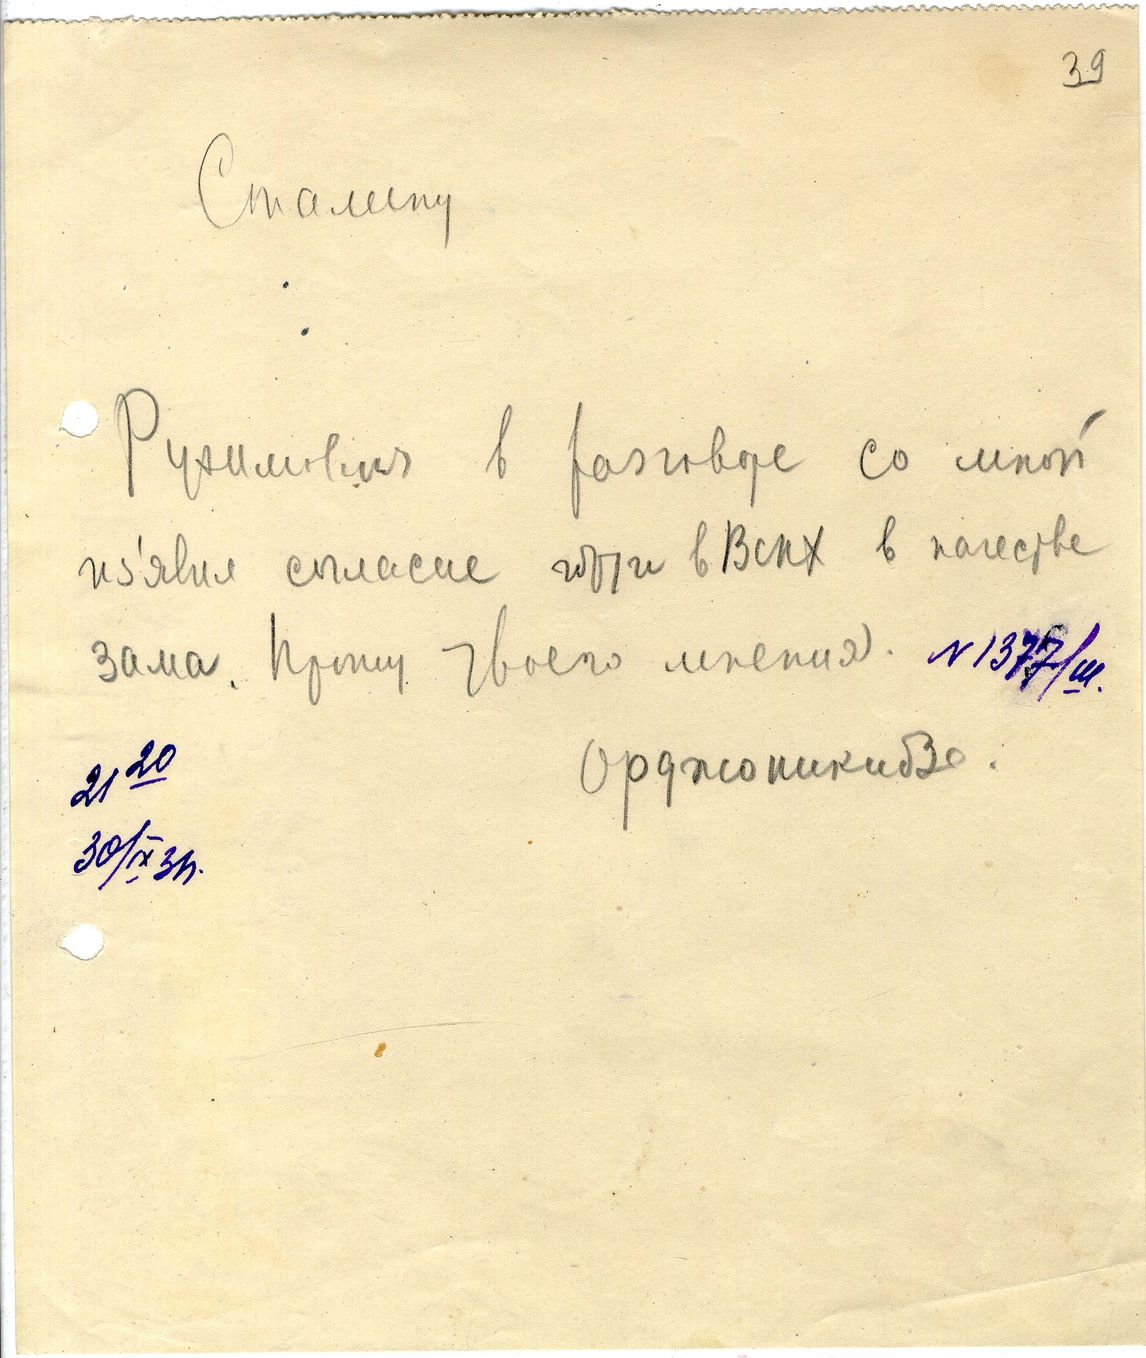 39
Сталину
Рухимович в разговоре со мной
из'явил согласие идти в ВСНХ в качестве
зама. Прошу твоего мнения. N 1377/ш.
Орджоникидзе.
21 20
30/IX 31г.